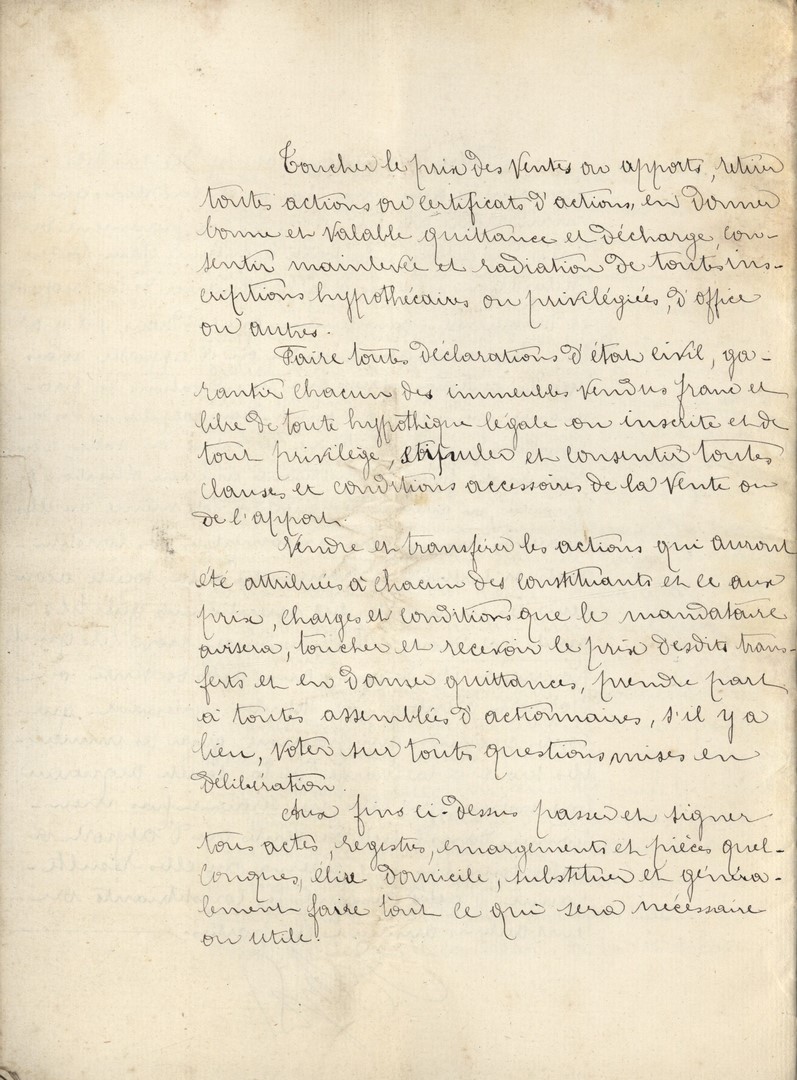 Toucher le prix des ventes ou apports, retirer
toutes actions ou certificats d'actions, en donner
bonne et valable quittance et décharge, con-
sentir mainlevée et radiation de toutes ins-
criptions hypothécaires ou privilégiées, d'office
ou autres.
Faire toutes déclarations d'état civil, ga-
rantir chacun des immeubles vendus franc et
libre de toute hypothèque légale ou inscrite et de
tout privilège, stipuler et consentir toutes
clauses et conditions accessoires de la vente ou
de l'apport.
Vendre et transférer les actions qui auront
été attribuées à chacun des constituants et ce aux
prix, charges et conditions que le mandataire
avisera, toucher et recevoir le prix desdits trans-
ferts et en donner quittances, prendre part
à toutes assemblées d'actionnaires, s'il y a
lieu, voter sur toutes questions mises en
délibération.
Aux fins ci-dessus passer et signer
tous actes, registres, emargements et pièces quel-
conques, élire domicile, substituer et généra-
lement faire tout ce qui sera nécessaire
ou utile.